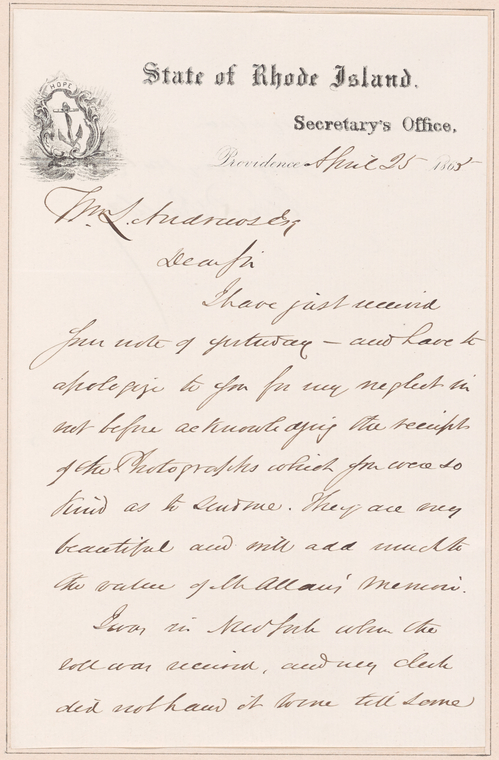 HOPE
State of Rhode Island.
Secretary's Office,
Providence April 25 1865
Wm. L. Andrews Esq
Dear Sir
I have just received
your note of yesterday – and have to
apologize to you for my neglect in
not before acknowledging the receipt
of the Photographs which you were so
kind as to send me. They are very
beautiful and will add much to
the value of Mr Allans' Memoir.
I was in New York when the
roll was received, and my clerk
did not hand it to me till some